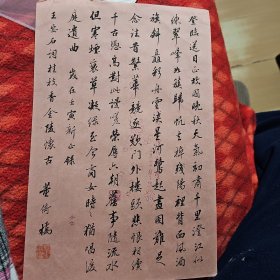 登臨送目正故國晚秋天氣初肅千里澄江似
練翠峰如簇歸帆去棹殘陽裡背西風酒
旗斜矗彩舟雲淡星河鷺起畫圖難足
念往昔繁華競逐歎門外樓頭悲恨相續
千古憑高對此謾嗟榮辱六朝舊事隨流水
但寒煙衰草凝綠至今商女時〻猶唱後
庭遺曲 歲在壬寅新正錄
王安石詞桂枝香金陵懷古